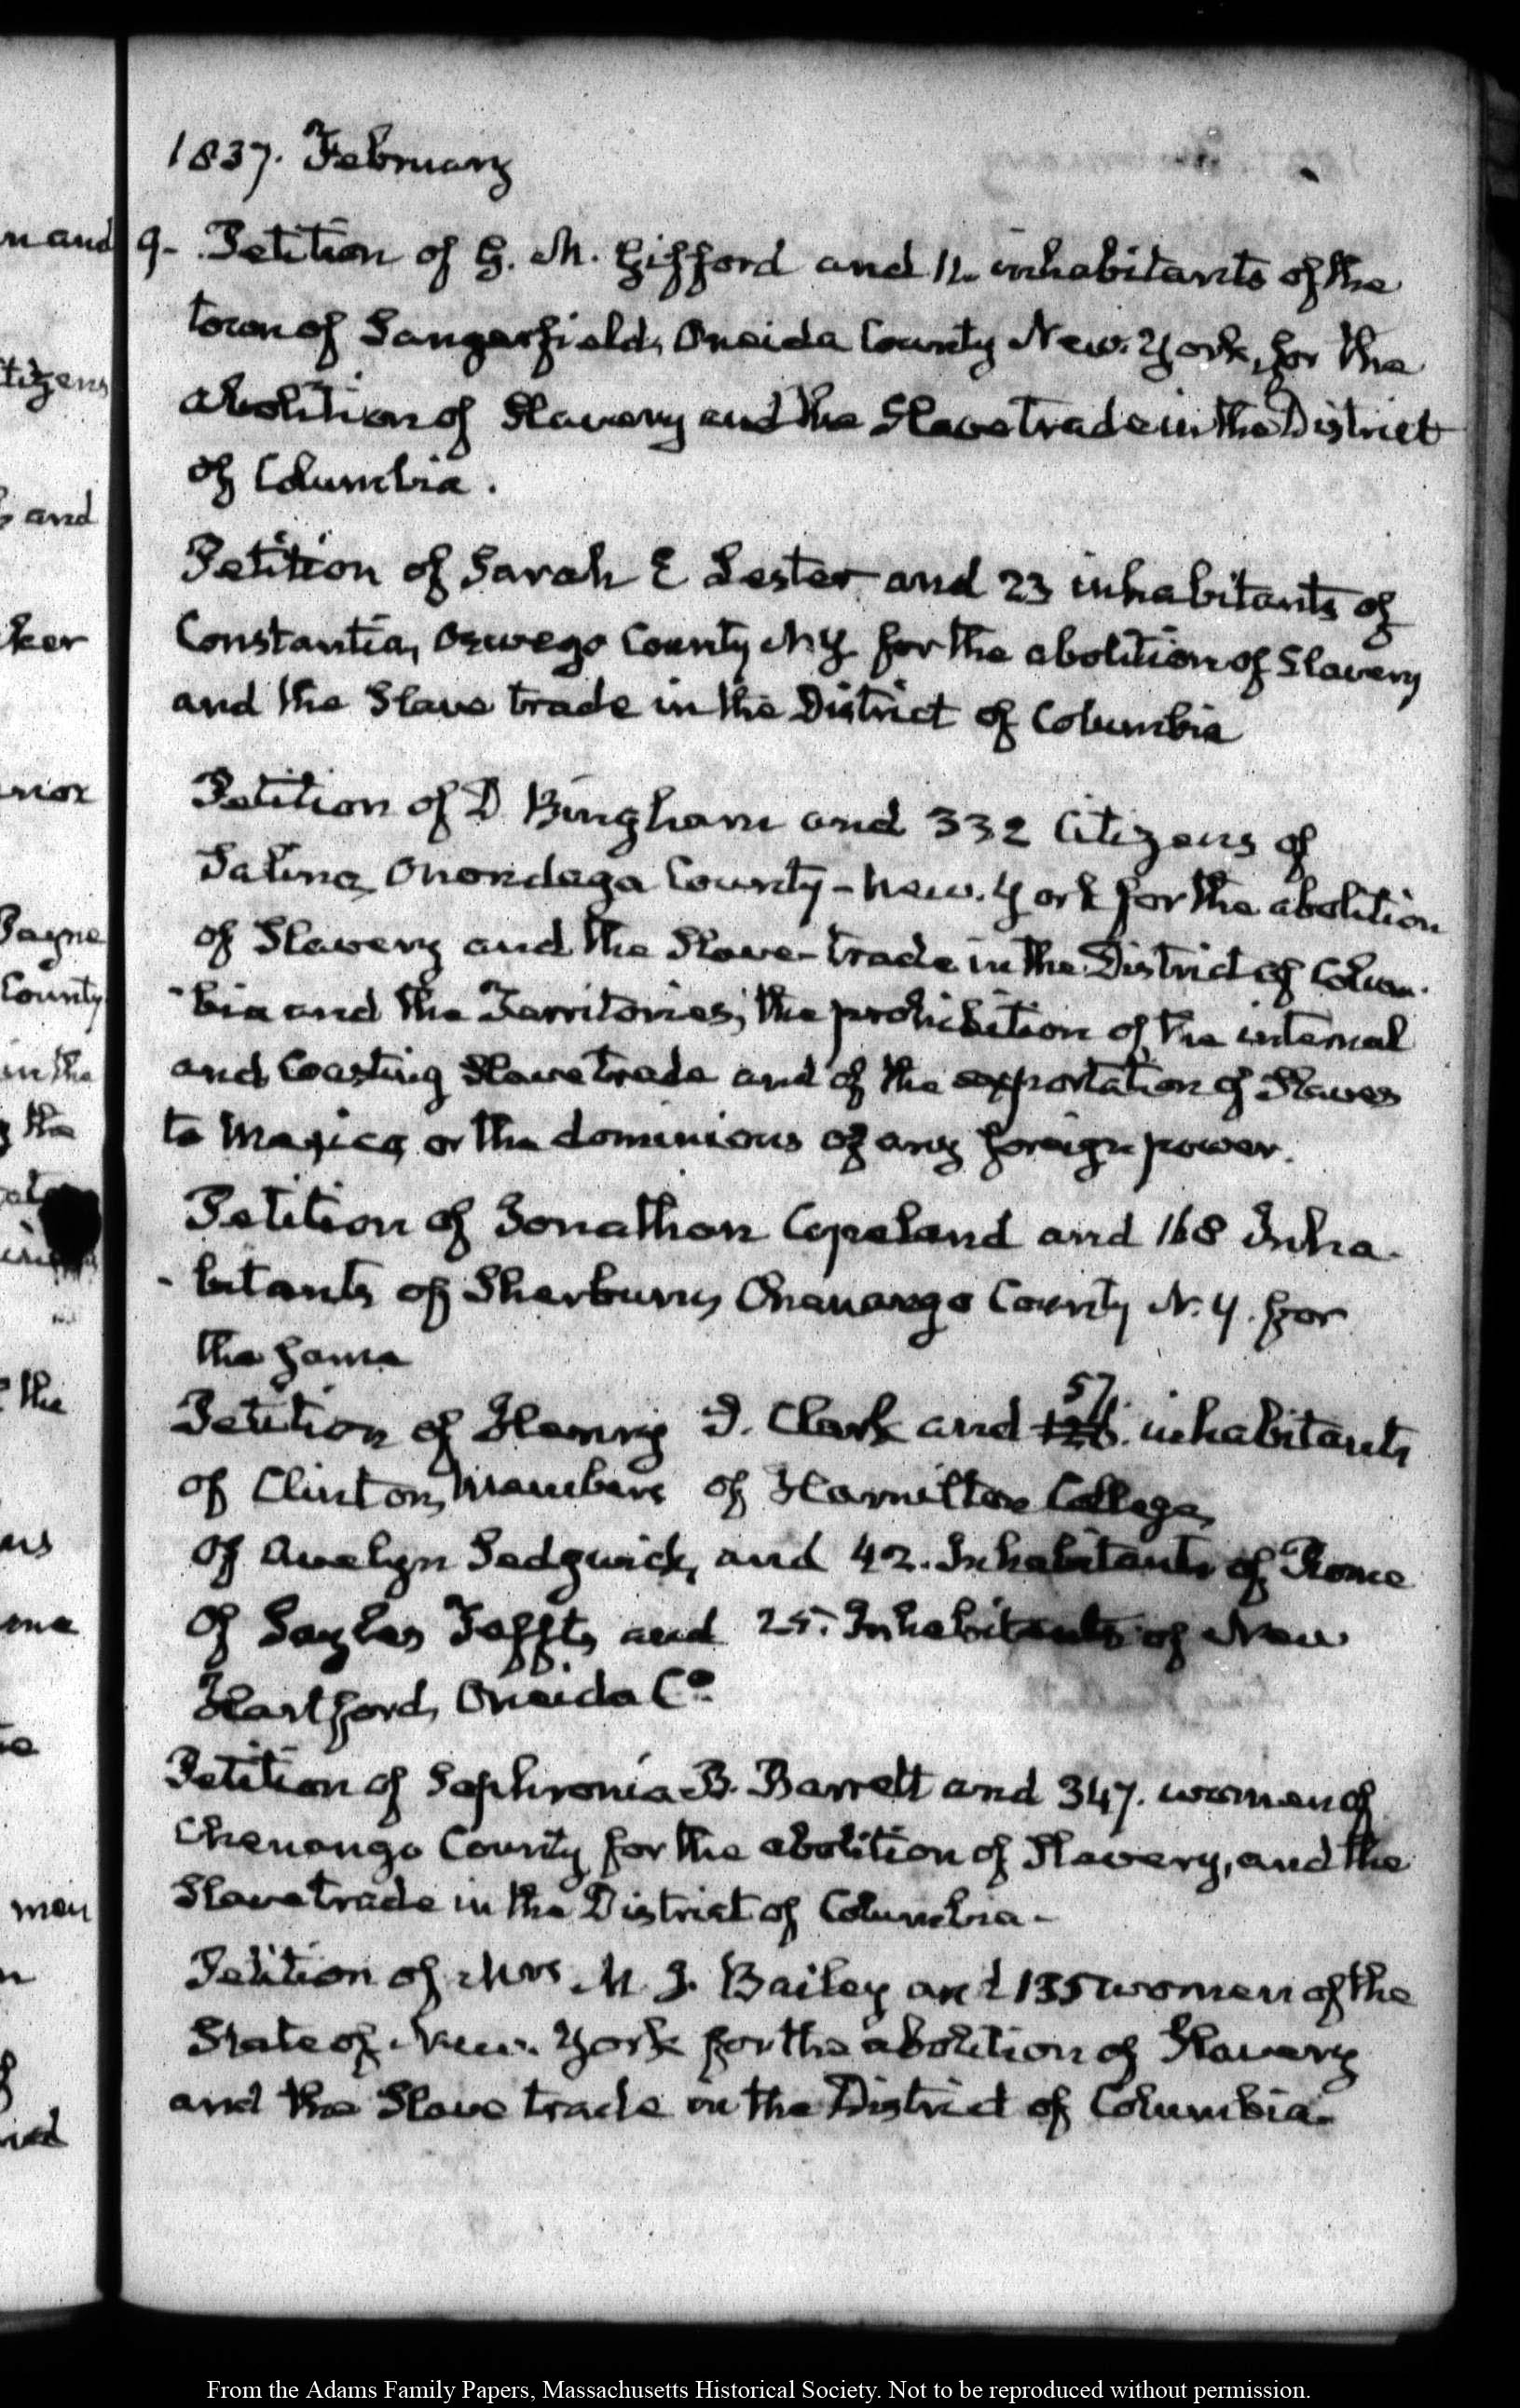 1837. February
9. Petition of G. M. Gifford and 11. inhabitants of the
town of Sangerfield, Oneida County New. York, for the
abolition of Slavery and the Slave trade in the District
of Columbia.
Petition of Sarah E Lester and 23 inhabitants of
Constantia, Oswego County N.Y. for the abolition of Slavery
and the Slave trade in the District of Columbia
Petition of D Bingham and 332 Citizens of
Salina, Onondaga County - New. York for the abolition
of Slavery and the Slave-trade in the District of Colum-
-bia and the Territories; the prohibition of the internal
and Coasting Slave trade and of the exportation of Slaves
to Mexico, or the dominions of any foreign power.
Petition of Jonathan Copeland and 168 Inha-
-bitants of Sherburne, Chenango County N.Y. for
the same
57.
Petition of Henry D. Clark and inhabitants
of Clinton, Members of Hamilton College,
of Avelyn Sedgwick, and 42. Inhabitants of Rome
of Sayles Tefft, and 25. Inhabitants of New
Hartford, Oneida Co.
Petition of Sophronia B. Barrett and 347. women of
Chenango County for the abolition of Slavery, and the
Slave trade in the District of Columbia-
Petition of Mrs M. J. Bailey and 135 women of the
State of New. York for the abolition of Slavery
and the Slave trade in the District of Columbia.
n and
tizens
and
ker
nor
Payne
County
in the
the
the
me
men
From the Adams Family Papers, Massachusetts Historical Society. Not to be reproduced without permission.